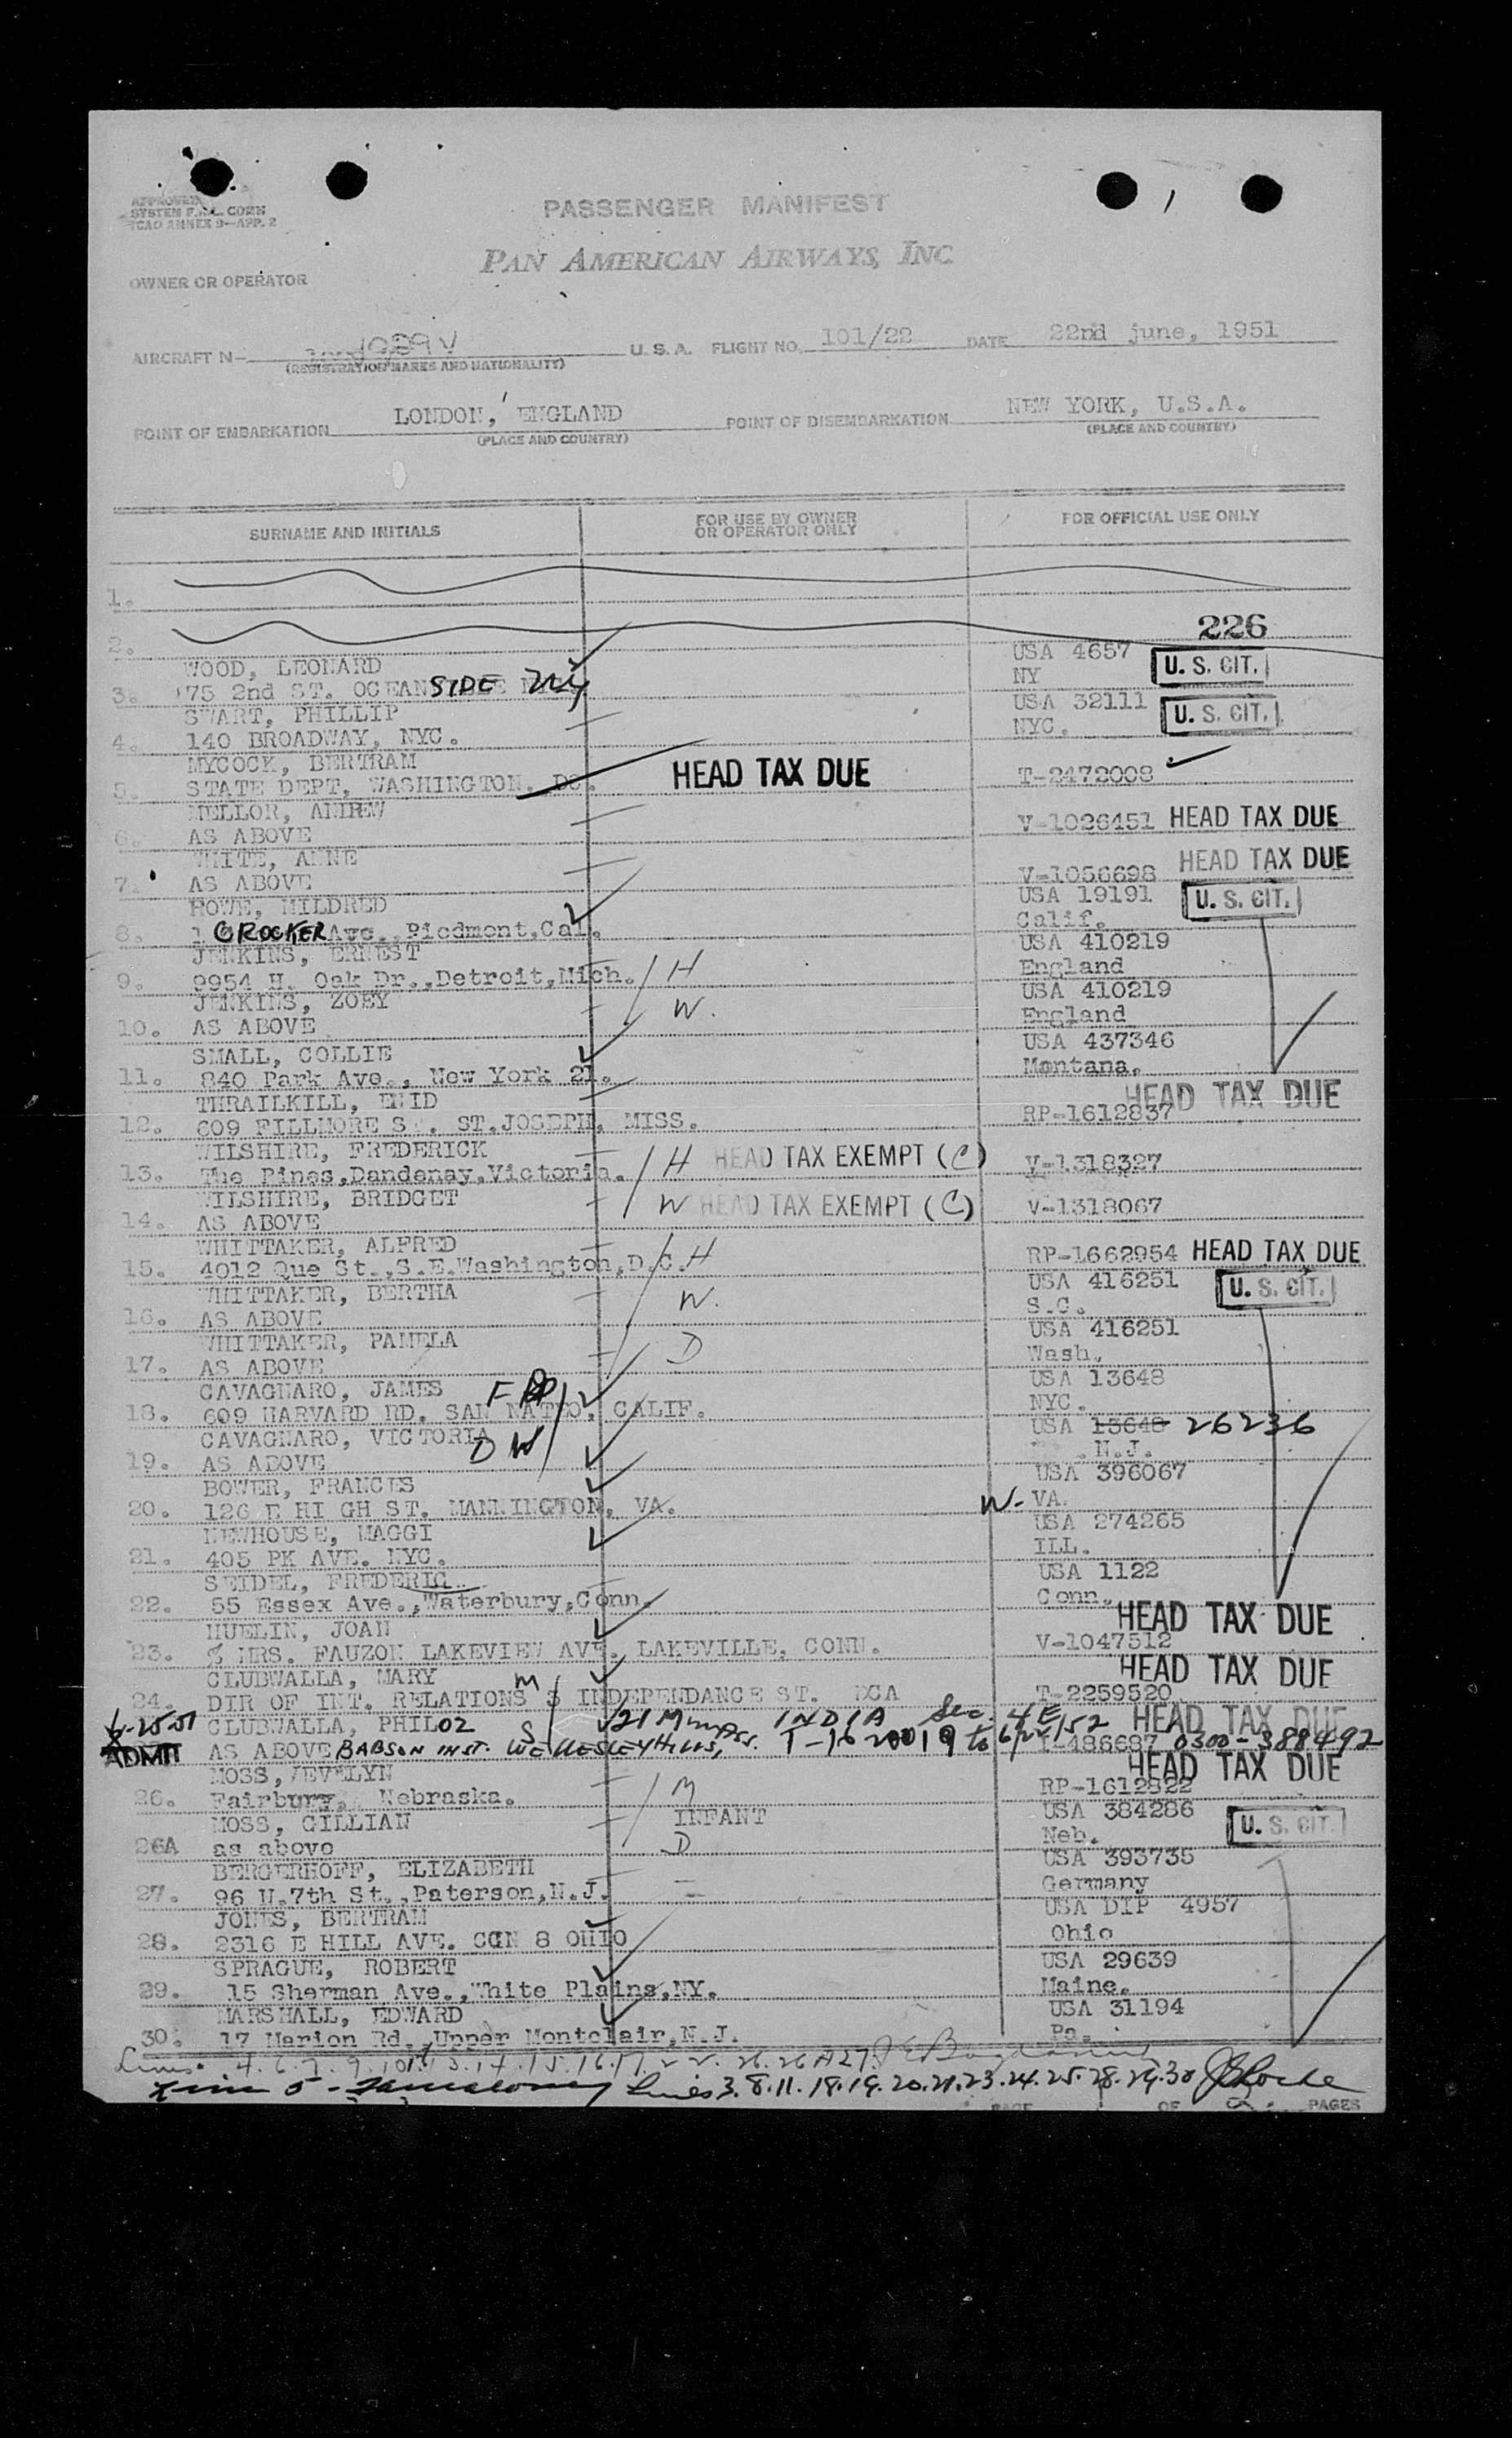 APPROVED
SYSTEM F.A.L. COMM
ICAO ANNEX 9—APP. 2
PASSENGER MANIFEST
PAN AMERICAN AIRWAYS, INC
OWNER OR OPERATOR
AIRCRAFT N- U.S.A. FLIGHT NO. 101/22 DATE 22nd june, 1951
(REGISTRATION MARKS AND NATIONALITY)
POINT OF EMBARKATION LONDON, ENGLAND POINT OF DISEMBARKATION NEW YORK, U.S.A.
(PLACE AND COUNTRY) (PLACE AND COUNTRY)
SURNAME AND INITIALS FOR USE BY OWNER OR OPERATOR ONLY FOR OFFICIAL USE ONLY
1.
2. 226
WOOD, LEONARD USA 4657 U. S. CIT.
3. 175 2nd ST. OCEANSIDE NY NY
SWART, PHILLIP USA 32111 U. S. CIT.
4. 140 BROADWAY, NYC. NYC.
MYCOCK, BERTRAM
5. STATE DEPT, WASHINGTON. DC. HEAD TAX DUE T-2472008
MELLOR, ANDREW
6. AS ABOVE V-1026451 HEAD TAX DUE
WHITE, ANNE HEAD TAX DUE
7. AS ABOVE V-1056698
ROWE, MILDRED USA 19191 U. S. CIT.
8. 1 CROCKER Ave., Piedmont,Cal. Calif.
JENKINS, ERNEST USA 410219
9. 9954 H. Oak Dr.,Detroit,Mich. H England
JENKINS, ZOEY USA 410219
10. AS ABOVE W. England
SMALL, COLLIE USA 437346
11. 840 Park Ave., New York 21. Montana.
THRAILKILL, ENID HEAD TAX DUE
12. 609 FILLMORE ST. ST.JOSEPH, MISS. RP-1612837
WILSHIRE, FREDERICK
13. The Pines,Dandenay,Victoria. H HEAD TAX EXEMPT (C) V-1318327
WILSHIRE, BRIDGET
14. AS ABOVE W HEAD TAX EXEMPT (C) V-1318067
WHITTAKER, ALFRED
15. 4012 Que St.,S.E.Washington,D.C. H RP-1662954 HEAD TAX DUE
WHITTAKER, BERTHA USA 416251 U. S. CIT.
16. AS ABOVE W. S.C.
WHITTAKER, PAMELA USA 416251
17. AS ABOVE D Wash.
CAVAGNARO, JAMES F USA 13648
18. 609 HARVARD RD. SAN MATEO, CALIF. NYC.
CAVAGNARO, VICTORIA D W USA 13648 26236
19. AS ABOVE N.J.
BOWER, FRANCIS USA 396067
20. 126 E HI GH ST. MANNINGTON, VA. W- VA.
NEWHOUSE, MAGGI USA 274265
21. 405 PK AVE. NYC. ILL.
SEIDEL, FREDERIC USA 1122
22. 55 Essex Ave.,Waterbury,Conn. Conn.
HUELIN, JOAN HEAD TAX DUE
23. % MRS. FAUZON LAKEVIEW AVE. LAKEVILLE, CONN. V-1047512
CLUBWALLA, MARY M HEAD TAX DUE
24. DIR OF INT. RELATIONS S INDEPENDANCE ST. DCA T-2259520
6-25-51 CLUBWALLA, PHILOZ S 21 M INDIA Sec. 4E HEAD TAX DUE
ADMIT AS ABOVE BABSON INST. WELLESLEY HILLS, Mass. T-1620019 to 6/24/52 T-486687 0300-388492
MOSS, EVELYN HEAD TAX DUE
26. Fairbury, Nebraska. M RP-1612822
MOSS, GILLIAN INFANT USA 384286 U. S. CIT.
26A as above D Neb.
BERGERHOFF, ELIZABETH USA 393735
27. 96 N.7th St.,Paterson,N.J. Germany
JONES, BERTRAM USA DIP 4957
28. 2316 E HILL AVE. CCIN 8 OHIO Ohio
SPRAGUE, ROBERT USA 29639
29. 15 Sherman Ave.,White Plains,NY. Maine.
MARSHALL, EDWARD USA 31194
30. 17 Marion Rd.,Upper Montclair,N.J. Pa.
Lines 4.6.7.9.10 13.14.15.16.17 26.26A 27.
Line 5 - Lines 3.8.11.18.19.20.21.23.24.25.28.29.30
PAGE OF 2 PAGES